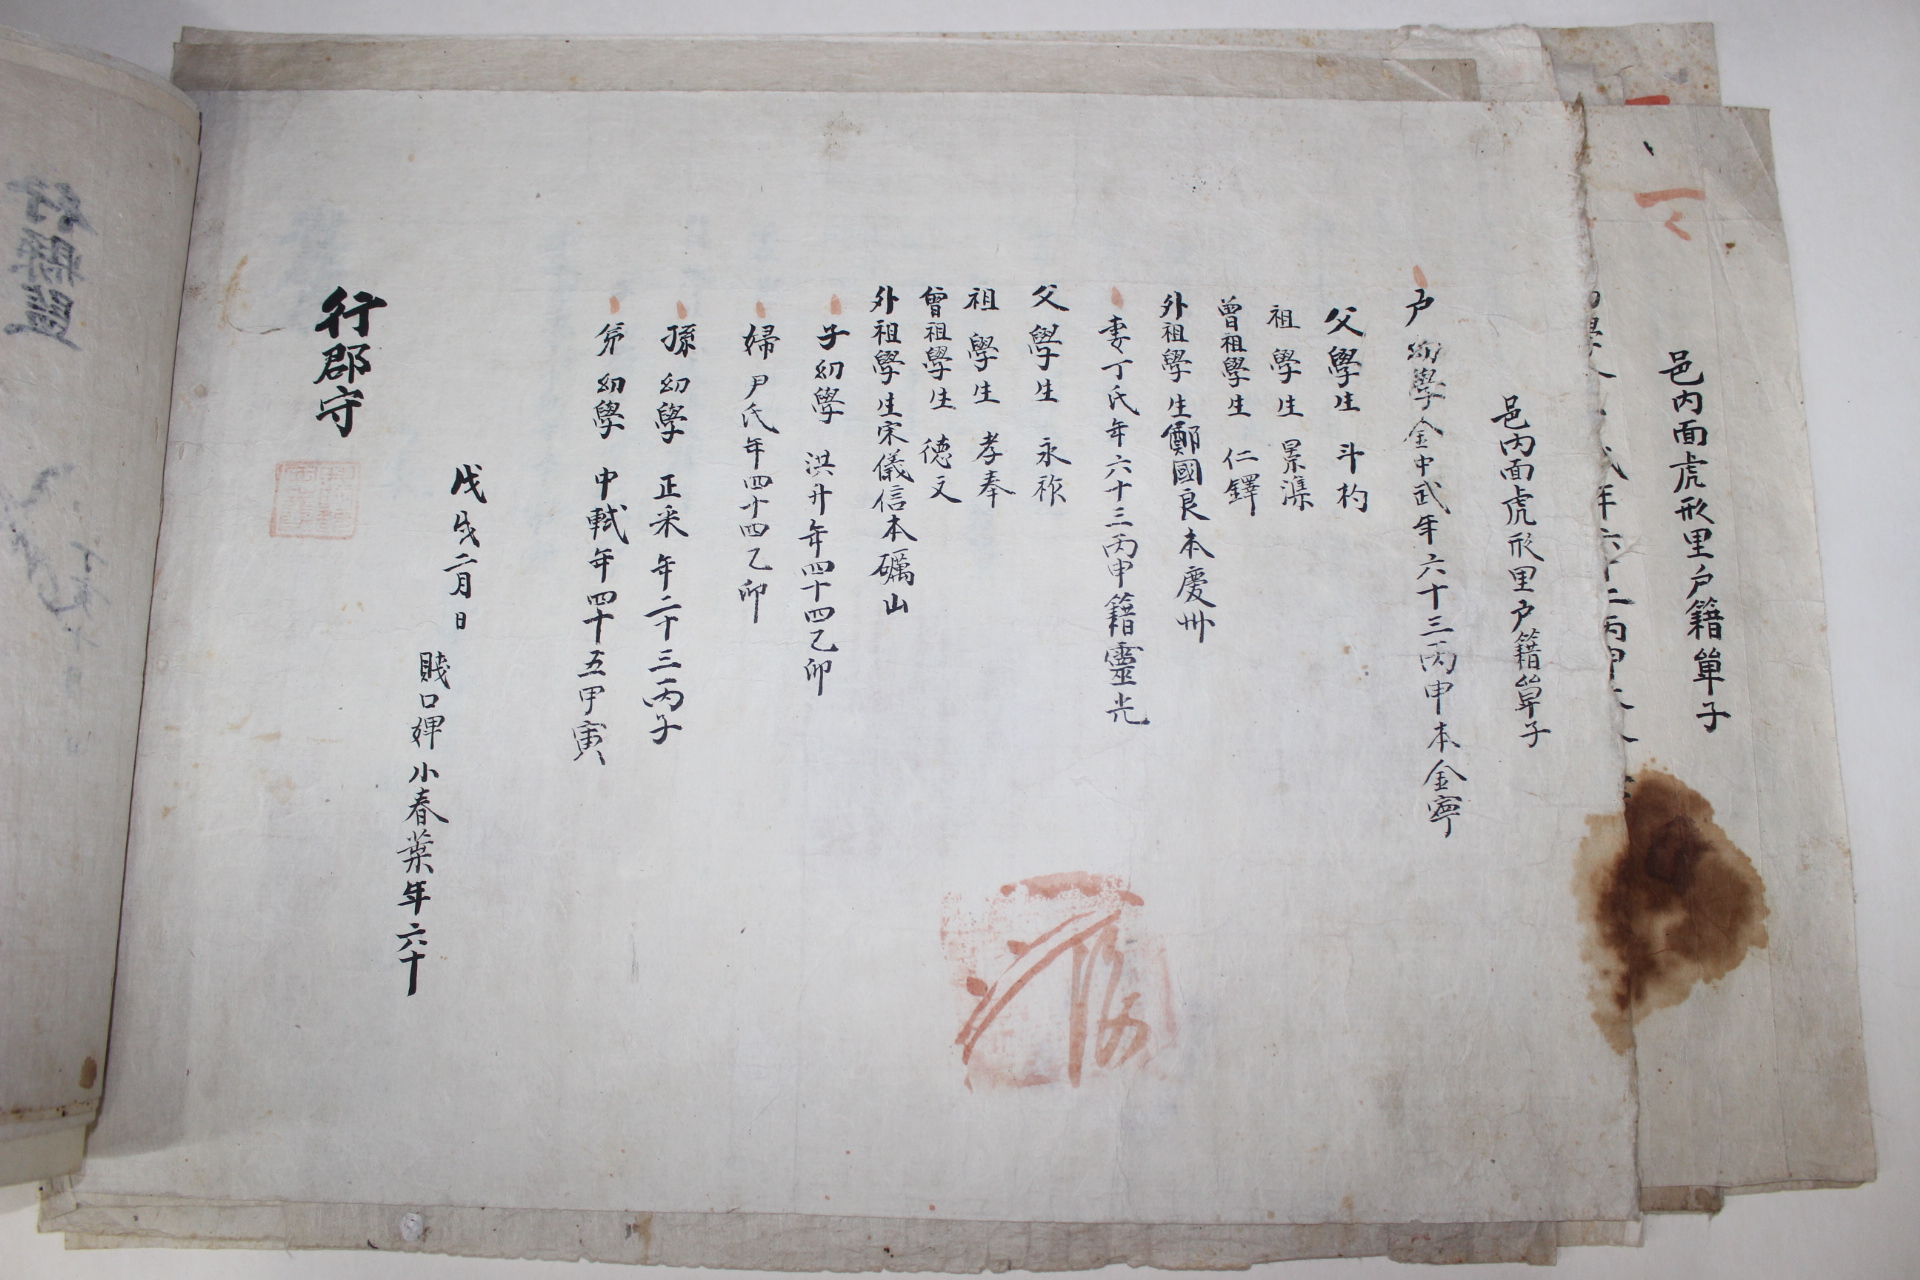 邑内面虎形里户籍單子
邑内面虎形里户籍單子
户幼學金中武年六十三丙申本金寧
父學生 斗杓
祖學生 景濼
曾祖學生 仁鐸
外祖學生鄭國良本慶州
妻丁氏年六十三丙申籍靈光
父學生 永禎
祖學生 孝奉
曾祖學生 德文
外祖學生宋儀信本礪山
子幼學 洪升年四十四乙卯
婦尹氏年四十四乙卯
孫幼學 正采年二十三丙子
弟幼學 中軾年四十五甲寅
戊戌二月日
賤口婢小春葉年六十
行郡守
行縣監